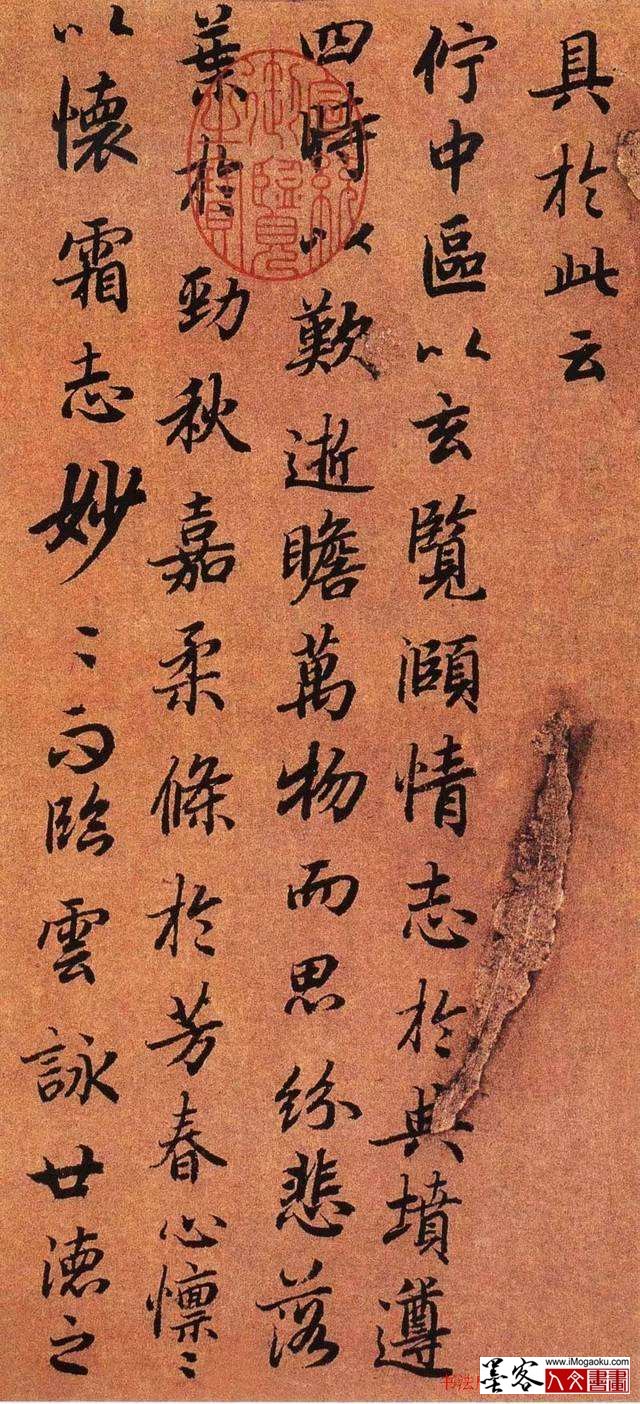 具於此云
佇中區以玄覽頤情志於典墳遵
四時以歎逝瞻萬物而思紛悲落
葉於勁秋嘉柔條於芳春心懍〻
以懷霜志妙〻而臨雲詠廿德之
宣統御覽之寶
书法
墨客
www.iMogaoku.com
人文書畫